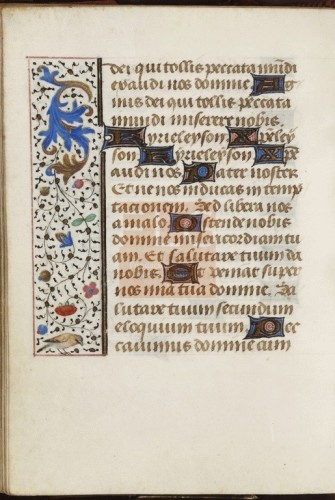 dei qui tollis peccata mūdi
exaudi nos domine. Ag
nus dei qui tollis peccata
mundi miserere nobis.
Kyrieleyson. Xpeley
son. Kyrieleyson. Xpe
audi nos. Pater noster.
Et ne nos inducas in temp
tacionem. Sed libera nos
a malo. Ostende nobis
domine misericordiam tu
am. Et salutare tuum da
nobis. Et veniat super
nos mia tua domine. Sa
lutare tuum secundum
eloquium tuum. Pec
cauimus domine cum